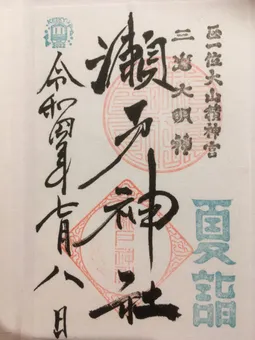 正一位大山積神宮
三島大明神
瀬戸神社
夏詣
令和四年七月八日